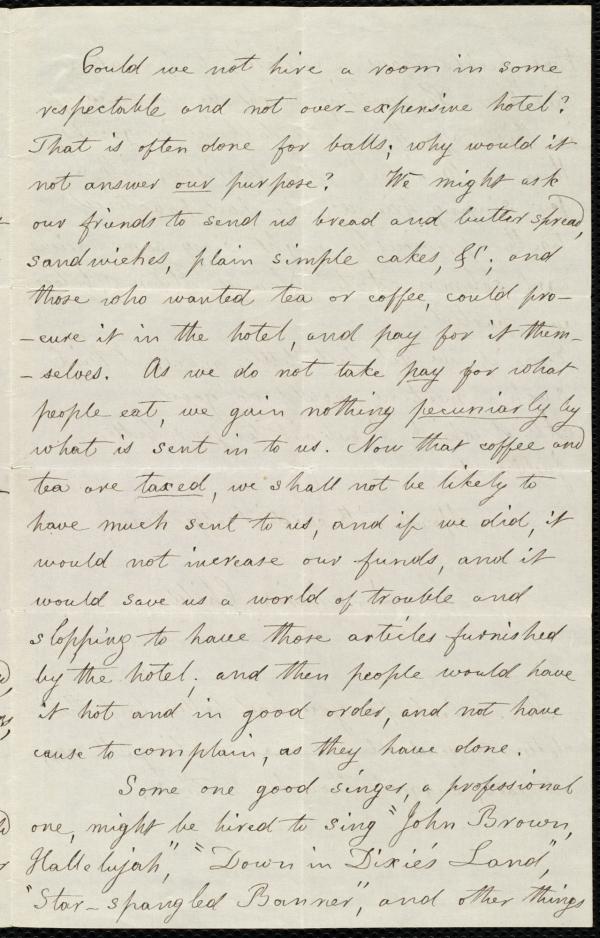 Could we not hire a room in some
respectable and not over-expensive hotel?
That is often done for balls; why would it
not answer our purpose? We might ask
our friends to send us bread and butter spread,
sandwiches, plain simple cakes, &c; and
those who wanted tea or coffee, could pro-
-cure it in the hotel, and pay for it them-
-selves. As we do not take pay for what
people eat, we gain nothing pecuniarly by
what is sent in to us. Now that coffee and
tea are taxed, we shall not be likely to
have much sent to us, and if we did, it
would not increase our funds, and it
would save us a world of trouble and
slopping to have those articles furnished
by the hotel; and then people would have
it hot and in good order, and not have
cause to complain, as they have done.
Some one good singer, a professional
one, might be hired to sing "John Brown,
Hallelujah", "Down in Dixie's Land",
"Star-spangled Banner", and other things